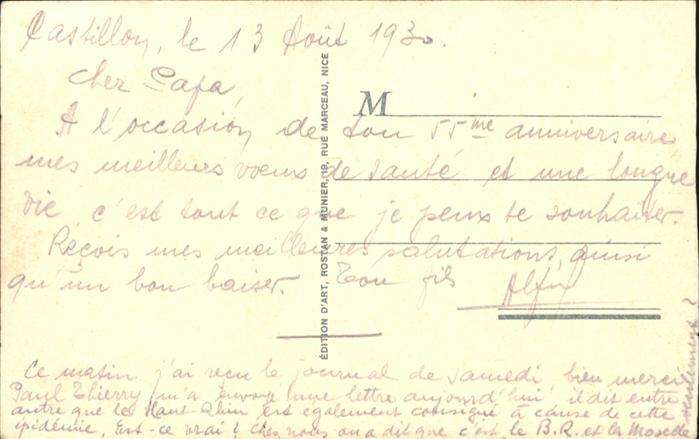 Castillon, le 13 Août 1930.
Cher Papa,
M
A l'occasion de ton 55me anniversaire
mes meilleurs voeux de santé et une longue
vie c'est tout ce que je peux te souhaiter.
Reçois mes meilleures salutations, ainsi
qu'un bon baiser. Ton fils
ÉDITION D'ART, ROSTAN & MUNIER, 19, RUE MARCEAU, NICE
Ce matin j'ai reçu le journal de Samedi, bien merci
Paul Thierry m'a envoyé une lettre aujourd'hui, il dit entre
autre que le Haut-Rhin est également consigné à cause de cette
épidémie, Est-ce vrai? Chez nous on a dit que c'est le B.R. et la Moselle